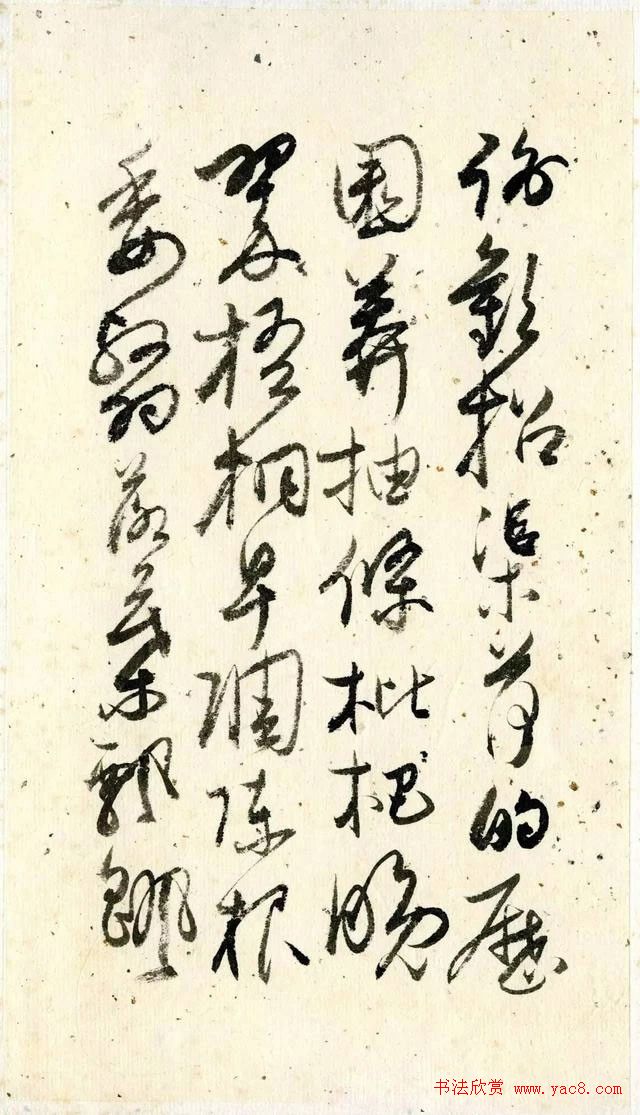 謝歡招渠荷的歷
園莽抽條枇杷晚
翠梧桐早凋陳根
委翳落葉飄颻
书法欣赏
www.yac8.com